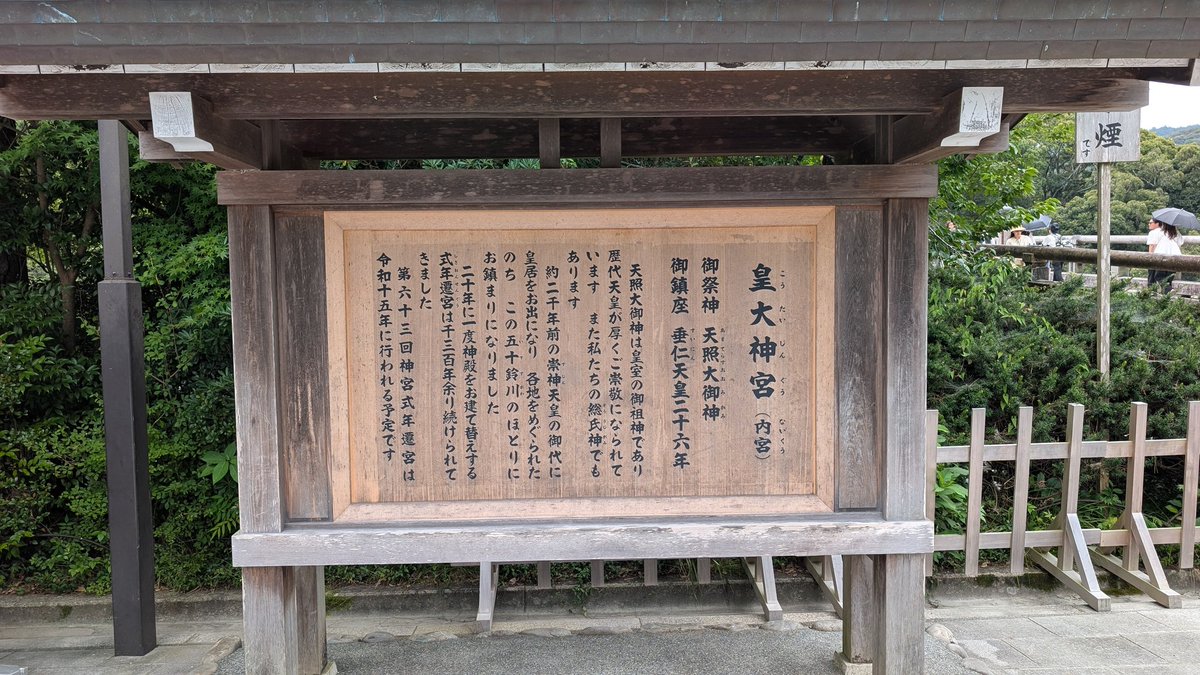 皇大神宮（内宮）
こうたいじんぐう ないくう
御祭神 天照大御神
あまてらすおおみかみ
御鎮座 垂仁天皇二十六年
すいにん
天照大御神は皇室の御祖神であり
歴代天皇が厚くご崇敬になられて
います また私たちの総氏神でも
あります
約二千年前の崇神天皇の御代に
皇居をお出になり 各地をめぐられた
のち この五十鈴川のほとりに
お鎮まりになりました
二十年に一度神殿をお建て替えする
式年遷宮は千三百年余り続けられて
きました
第六十三回神宮式年遷宮は
令和十五年に行われる予定です
煙
です